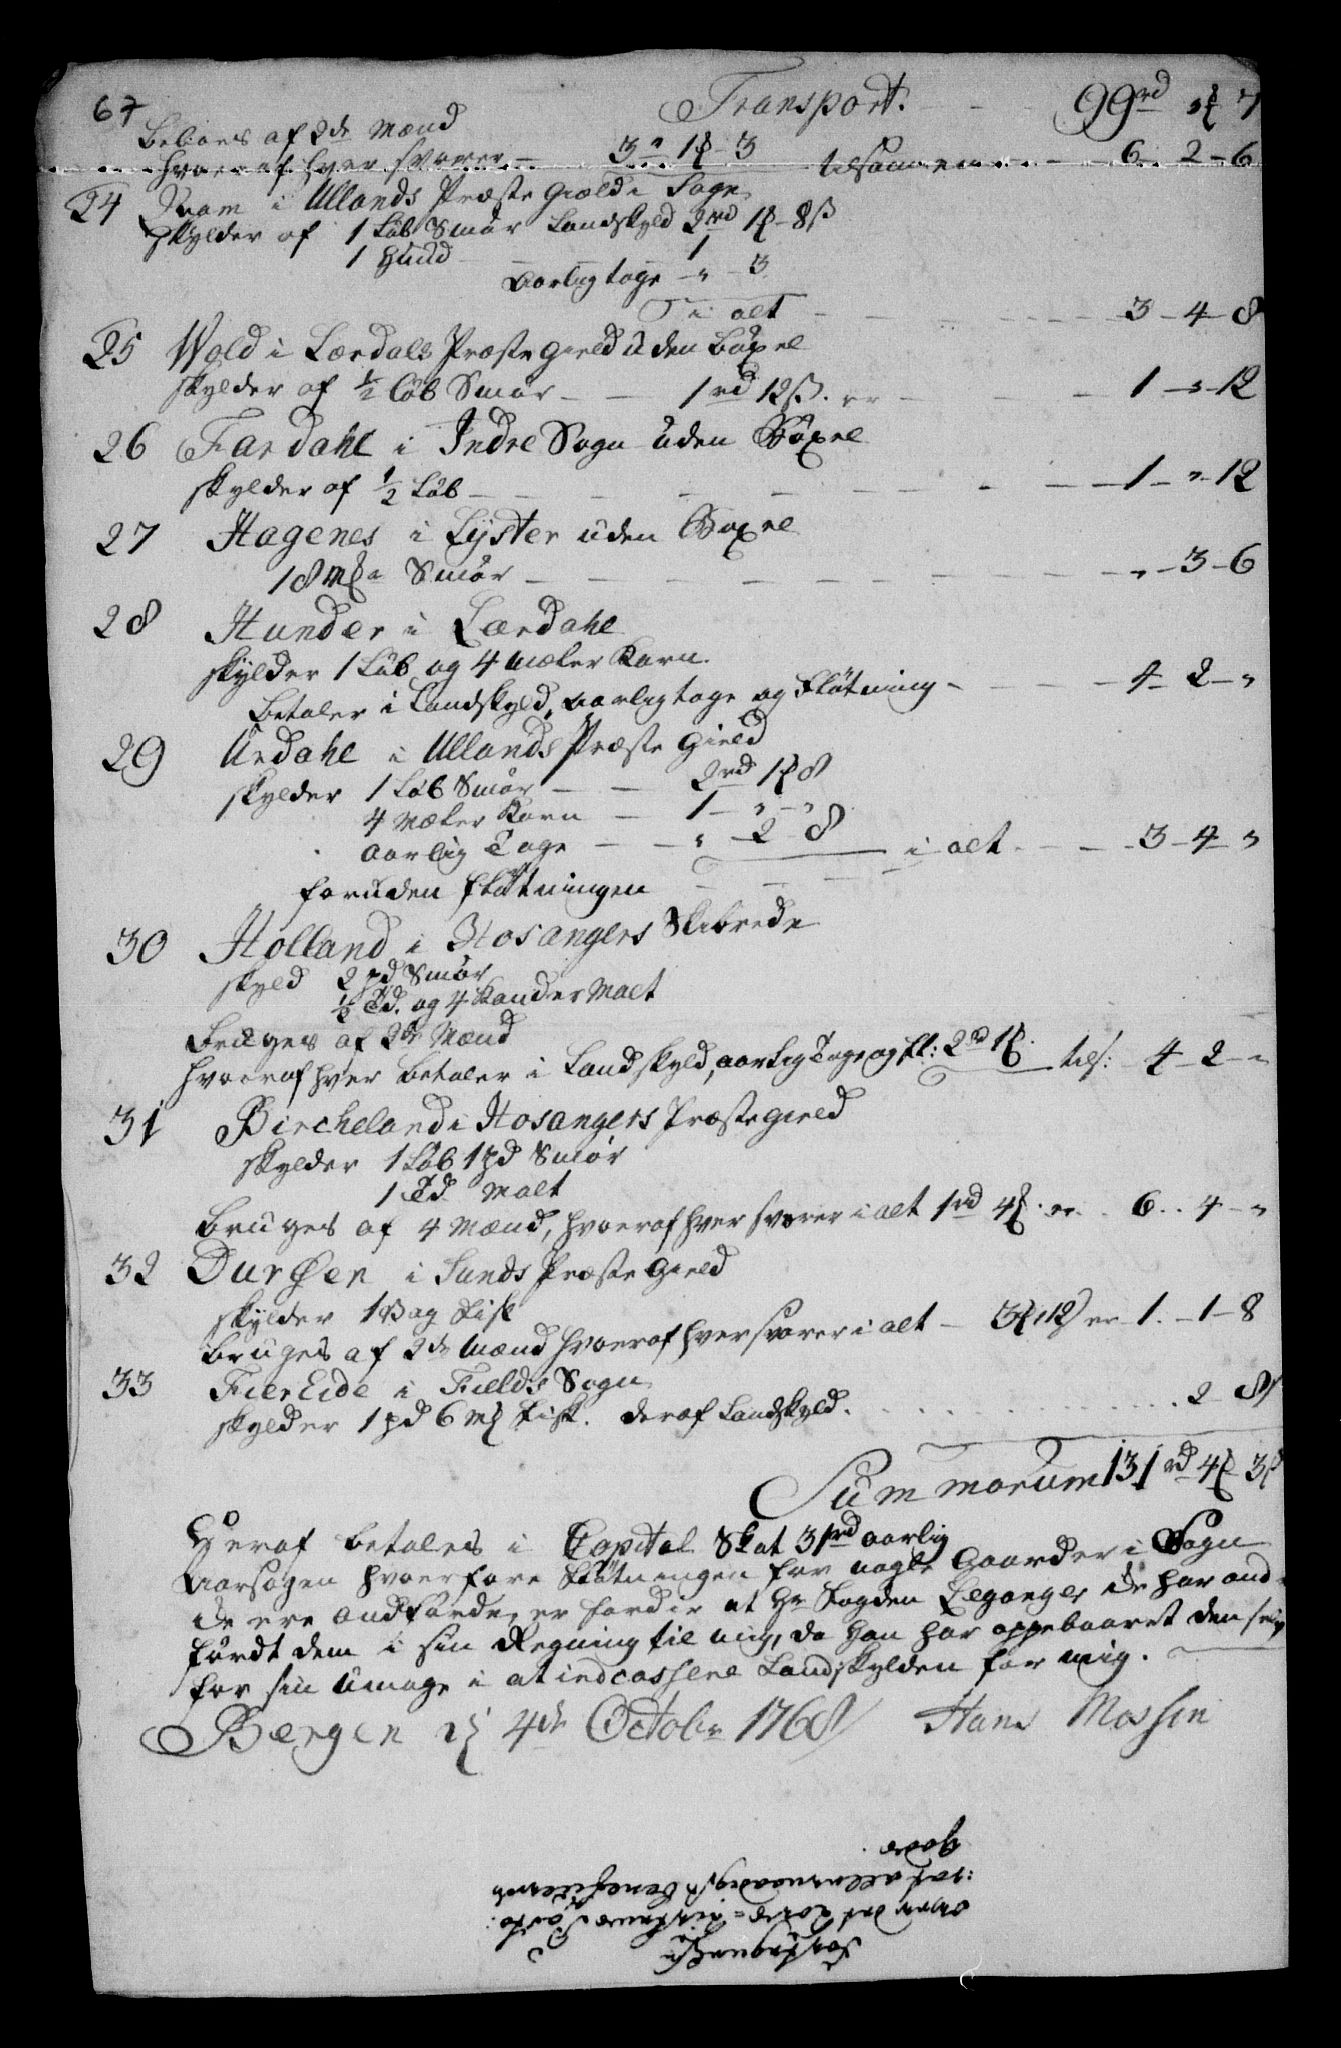 67 Transport. 99rd " 7
Beboes af 2de Mænd
hvoraf hver svarer - 3 " 1 - 3 tilsammen - - 6. 2 - 6
24 Qvam i Ullands Præste Gield i Sogn
skylder af 1 Løb Smør Landskyld 2rd 1 - 8ß
1 Huud - - 1
Aarlig tage - " - 3
i alt - - - 3 - 4 - 8
25 Vold i Lærdals Præste gield uden Bøxel
skylder af ½ Løb Smør - - 1rd 12ß. er - - - 1 - " - 12
26 Fardahl i Indre Sogn uden Bøxel
skylder af ½ Løb - - - - - 1 - " - 12
27 Hagenes i Lyster uden Boxel
18 mk Smør - - - - - " - 3 - 6
28 Hunder i Lærdahl
skylder 1 Løb og 4 mæler Korn.
Betaler i Landskyld, aarligtage og Fløtning - - - 4 - 2 - "
29 Urdahl i Ullands Præste Gield
skylder 1 Løb Smør - - 2rd 1 8
4 Mæler Korn - 1 - " - "
aarlig Tage - - " - 2 - 8 i alt - - - 3 - 4 - "
foruden fløtningen
30 Holland i Hosangers Skibrede
skyld 2 pd Smør
½ Td. og 4 Kander Malt
Bruges af 2de Mænd
hvoraf hver betaler i Landskyld, aarlig Tage og fl: 2rd 1. tils: 4 - 2 - "
31 Birkeland i Hosangers Præstegield
skylder 1 Løb 1 pd Smør
1 Td. Malt
Bruges af 4 Mænd, hvoraf hver svarer i alt 1rd 4. er. 6. . 4 - "
32 Durøen i Sunds Præste Gield
skylder 1 Vog Fisk
Bruges af 2de Mænd hvoraf hver svarer i alt - 3 12 er 1. - 1 - 8
33 Fiereide i Fields Sogn
skylder 1 pd 6 mk Fisk. deraf Landskyld. . . . . 2 8ß
Summarum 131rd 4 3ß
Heraf betales i Capital Skat 31rd aarlig
Aarsagen hvorfore Fløtningen for nogle Gaarder i Sogn
de ere andførde, er fordi at Hr Fogden Leganger de har and-
førdt dem i sin Regning til mig, da han har oppebaaret den selv
for sin Umage i at indcassere Landskylden for mig.
Bergen d 4de Octobr 1768 Hans Mossin
over det
allernaadigst
Gods